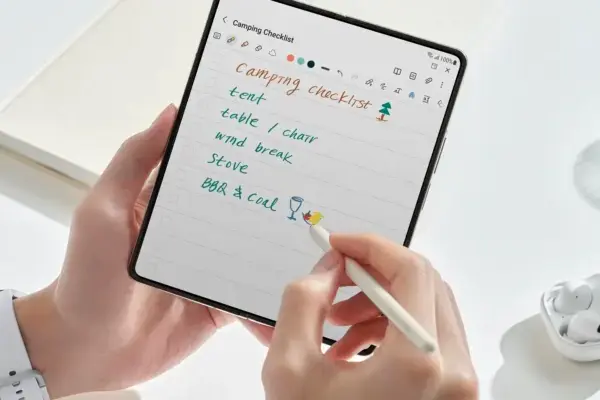 100%
Camping Checklist
Camping checklist
tent
table / chair
wind break
Stove
BBQ & Coal